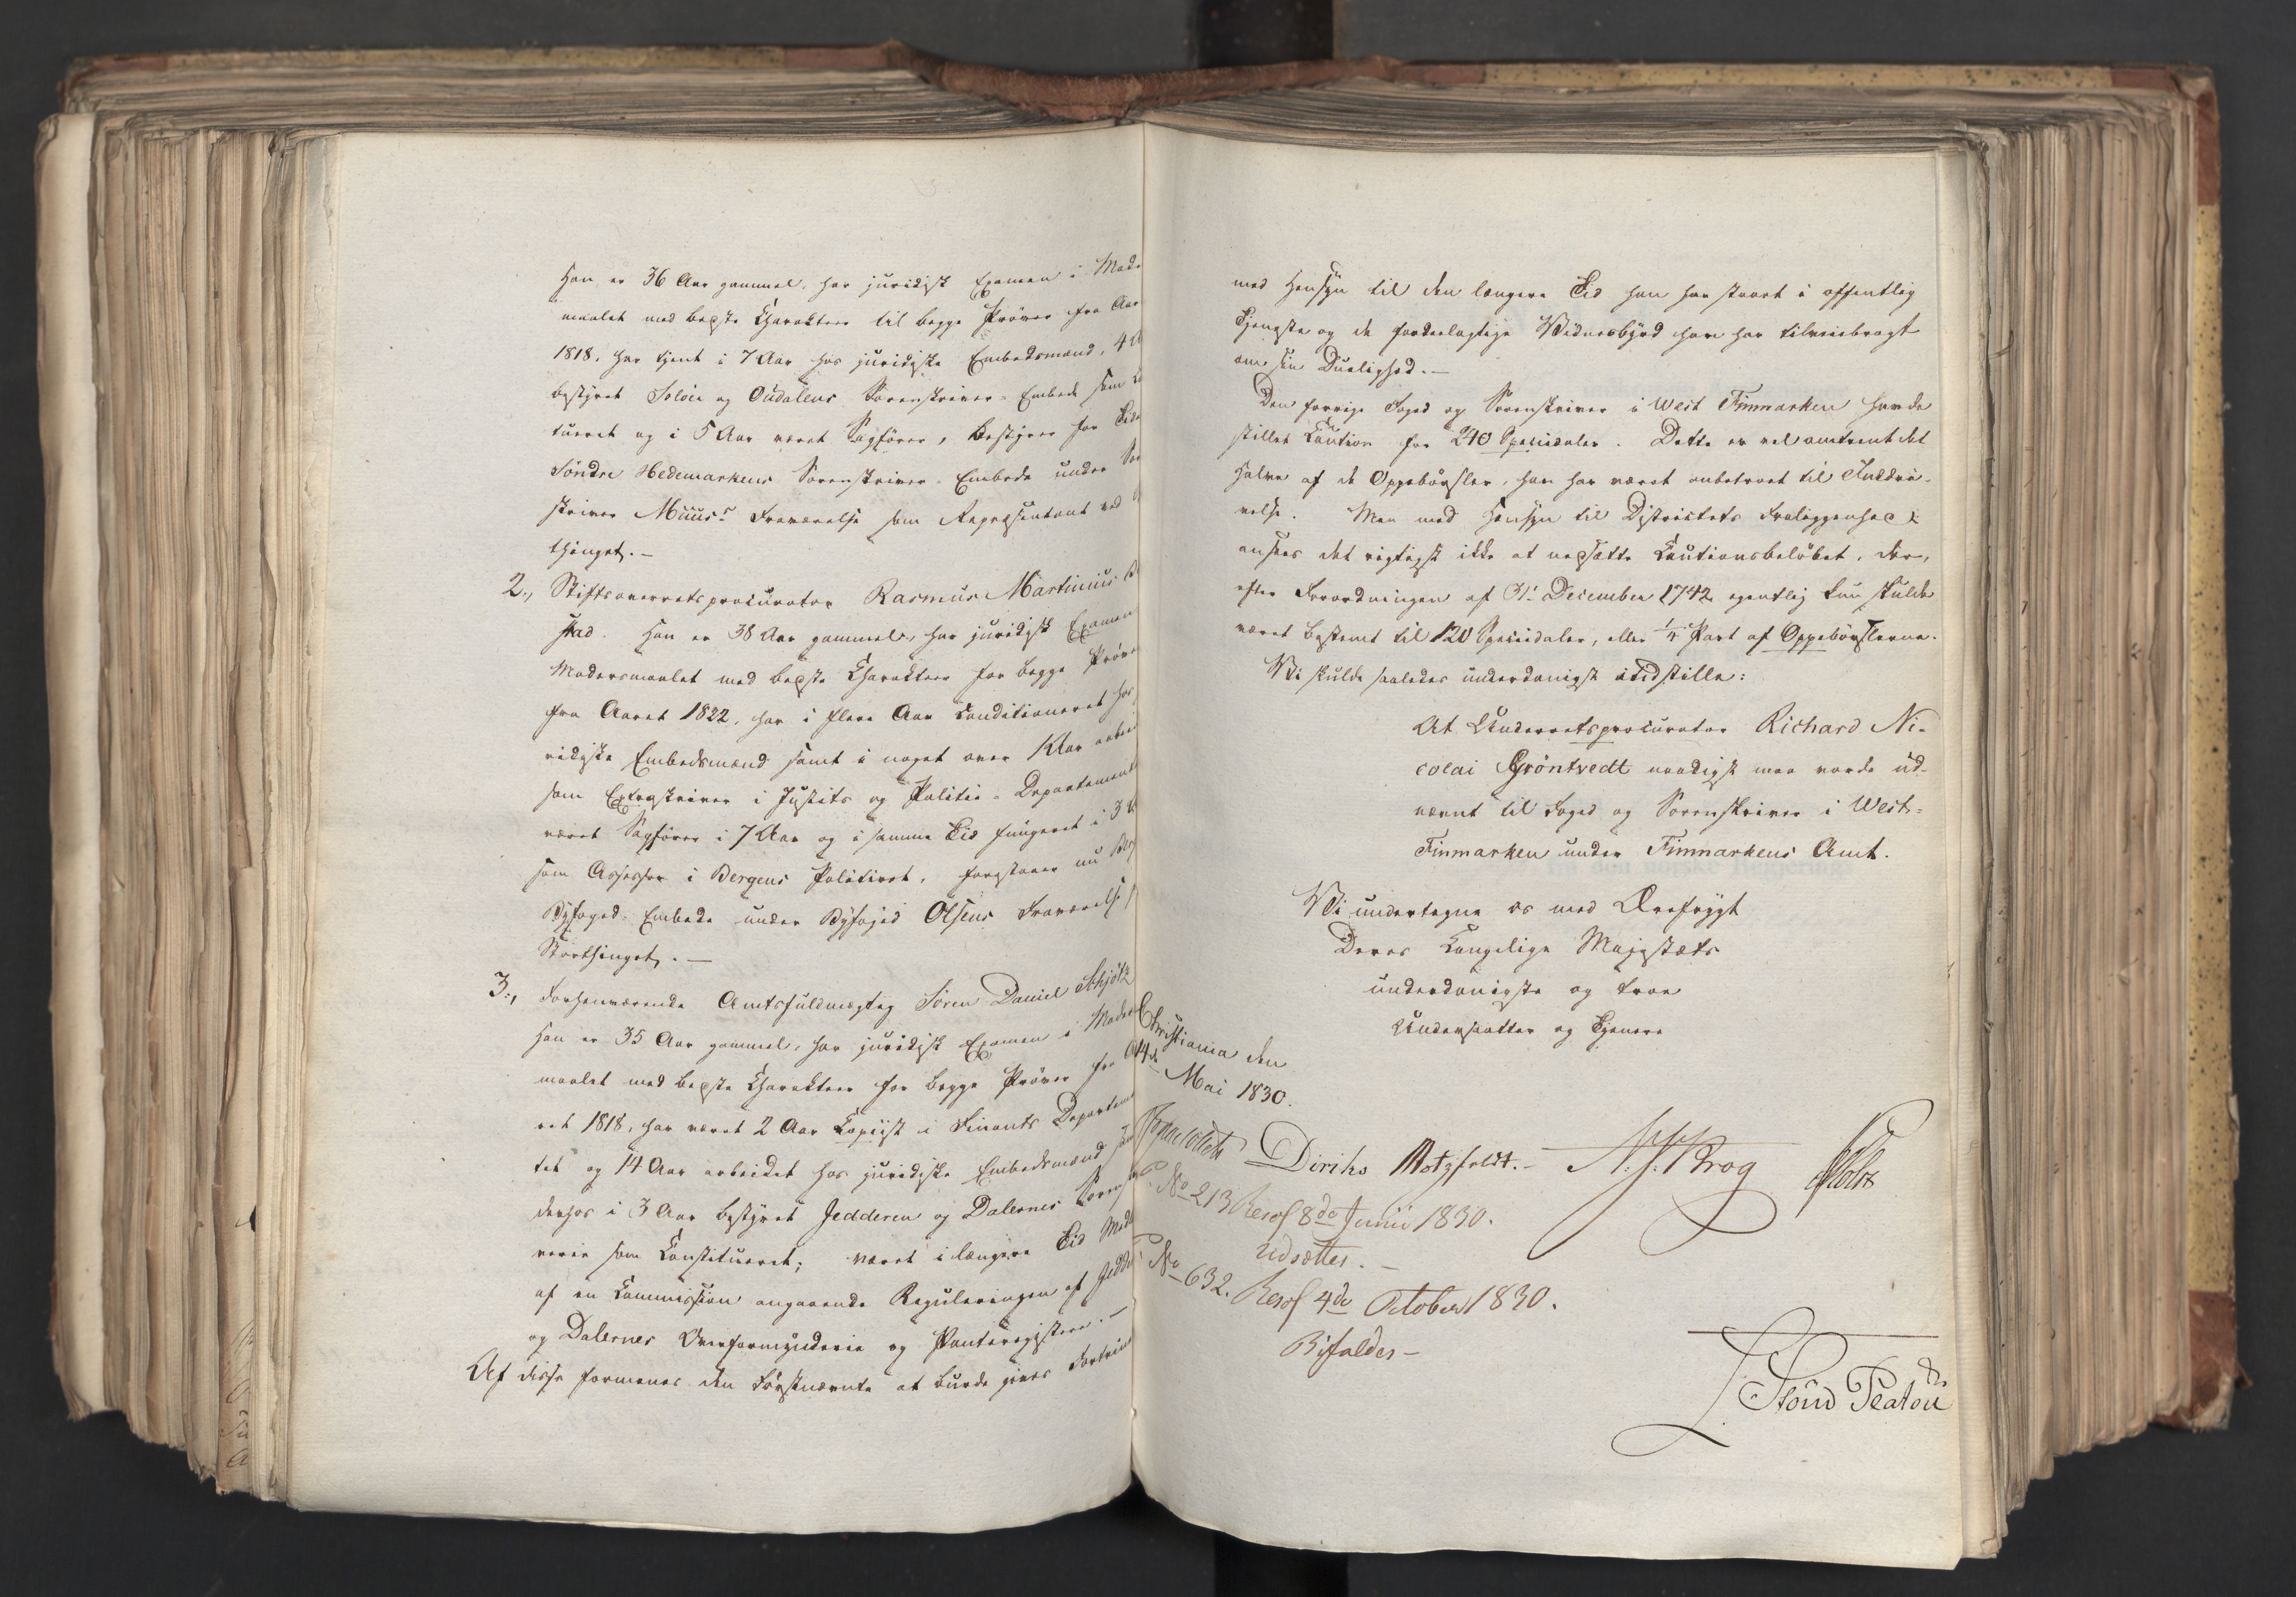 Han er 36 Aar gammel, har juridisk Examen i Mode
maalet med bedste Charakteer til begge Prøver fra Aar
1818, har tjent i 7 Aar hos juridiske Embedsmænd, 4 A
bestyret Soløer og Oudalens Sorenskriver-Embede som
tueret og i 5 Aar været Sagfører, bestyrer for Tide
Søndre Hedemarkens Sorenskriver-Embede under Sor
skriver Muus's Fraværelse som Repræsentant ved
thinget.—
2., Stiftsoverretsprocurator Rasmus Martinius
stad. Han er 38 Aar gammel, har juridisk Examen
Modersmaalet med bedste Charakteer for begge Prøve
fra Aaret 1822, har i flere Aar conditioneret hos
ridiske Embedsmænd samt i noget over 1 Aar arbei
som Extraskriver i Justits og Politie-Departement
været Sagfører i 7 Aar og i samme Tid fungeret i 3
som Assessor i Bergens Politiret, forestaaer nu Berg
Byfoged-Embede under Byfoged Olsens Fraværelse
Storthinget.—
3., Forhenværende Amtsfuldmægtig Sören Daniel Schjötz
Han er 35 Aar gammel, har juridisk Examen i Moders
maalet med bedste Charakteer for begge Prøver fra A
ret 1818, har været 2 Aar Copiist i Finants Departem
tet og 14 Aar arbeidet hos juridiske Embedsmænd
derhos i 3 Aar bestyret Jedderen og Dalernes Sorenskri
verie som Constitueret; været i længere Tid Med
af en Commission angaaende Reguleringen af Jedde
og Dalernes Overformynderie og Panteregistere.—
Af disse formenes den Førstnævnte at burde gives Fortrin
med Hensyn til den længere Tid han har staaet i offentlig
Tjeneste og de fordeelagtige Vidnesbyrd han har tilveiebragt
om sin Duelighed.—
Den forrige Foged og Sorenskriver i West Finmarken havde
stillet Caution for 240 Speciedaler. Dette er vel omtrent det
Halve af de Oppebørsler, han har været anbetroet til Inddri-
velse. Men med Hensyn til Districtets Fraliggenhed
ansees det rigtigst ikke at nedsætte Cautionsbeløbet, der,
efter Forordningen af 31 December 1742 egentlig kun skulde
været bestemt til 120 Speciedaler, eller 1/4 Part af Oppebørslerne.
Vi skulde saaledes underdanigst indstille:
At Underretsprocurator Richard Ni-
colai Gröntvedt naadigst maa vorde ud-
nævnt til Foged og Sorenskriver i West-
Finmarken under Finmarkens Amt.
Vi undertegne os med Ærefrygt
Deres Kongelige Majestæts
underdanigste og troe
Undersaatter og Tjenere
Christiania den
14de Mai 1830.
Jonas Collett Diriks Motzfeldt.— N. J. Krog Holst
No 213 Resol 8de Junii 1830.
Udsættes.—
No 632. Resol 4de October 1830.
Bifaldes—
L. Stoud Platou